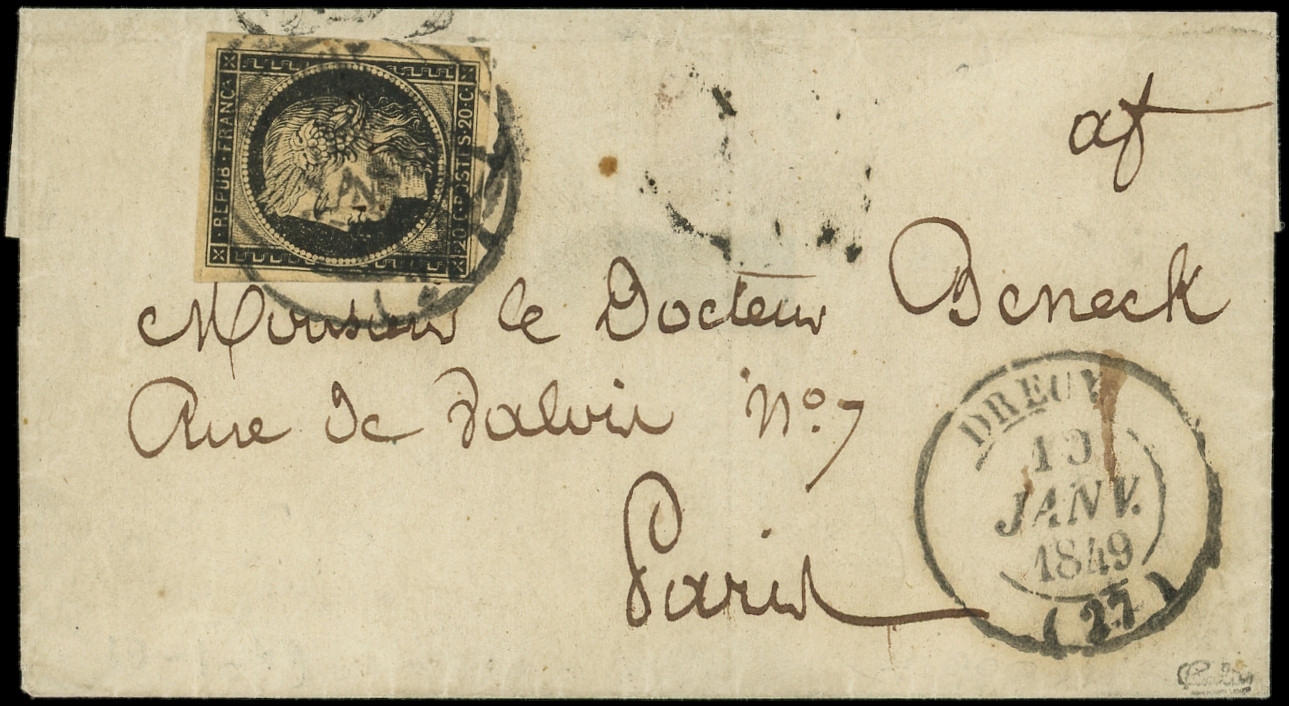 REPUB·FRANC·
20·C·POSTES·20·C·
af
Monsieur le Docteur Beneck
Rue de Valois No. 7
Paris
DREUX
19
JANV.
1849
(27)